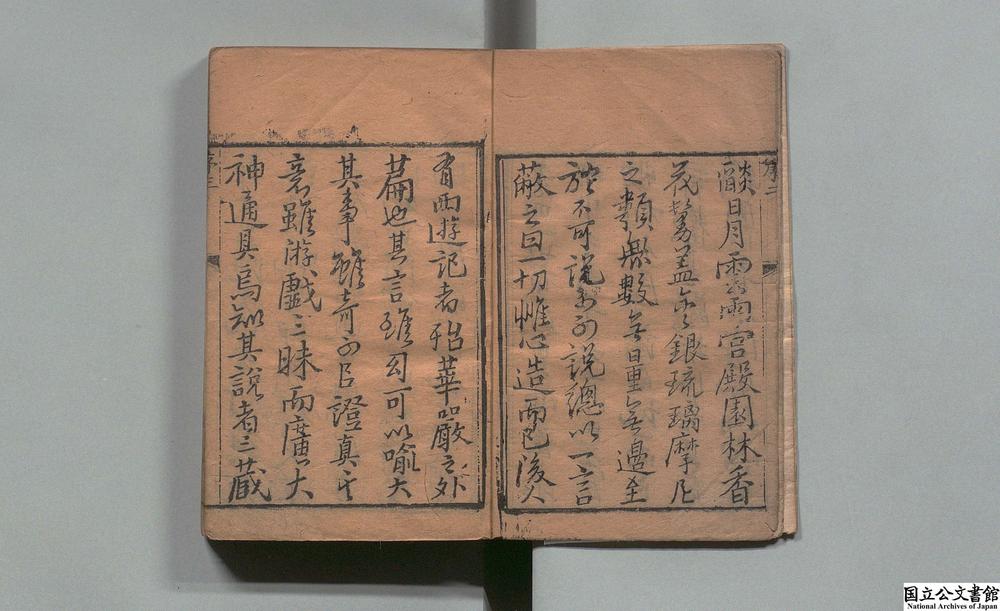 序二
燄日月雲雨宮殿園林香
花鬘蓋金銀琉璃摩尼
之類無數無量無邊至
於不可說不可說總以一言
蔽之曰一切惟心造而已後人
有西遊記者殆華嚴之外
篇也其言雖幻可以喻大
其事雖奇可以證真其
意雖游戲三昧而廣大
神通具焉知其說者三藏
序三
国立公文書館
National Archives of Japan